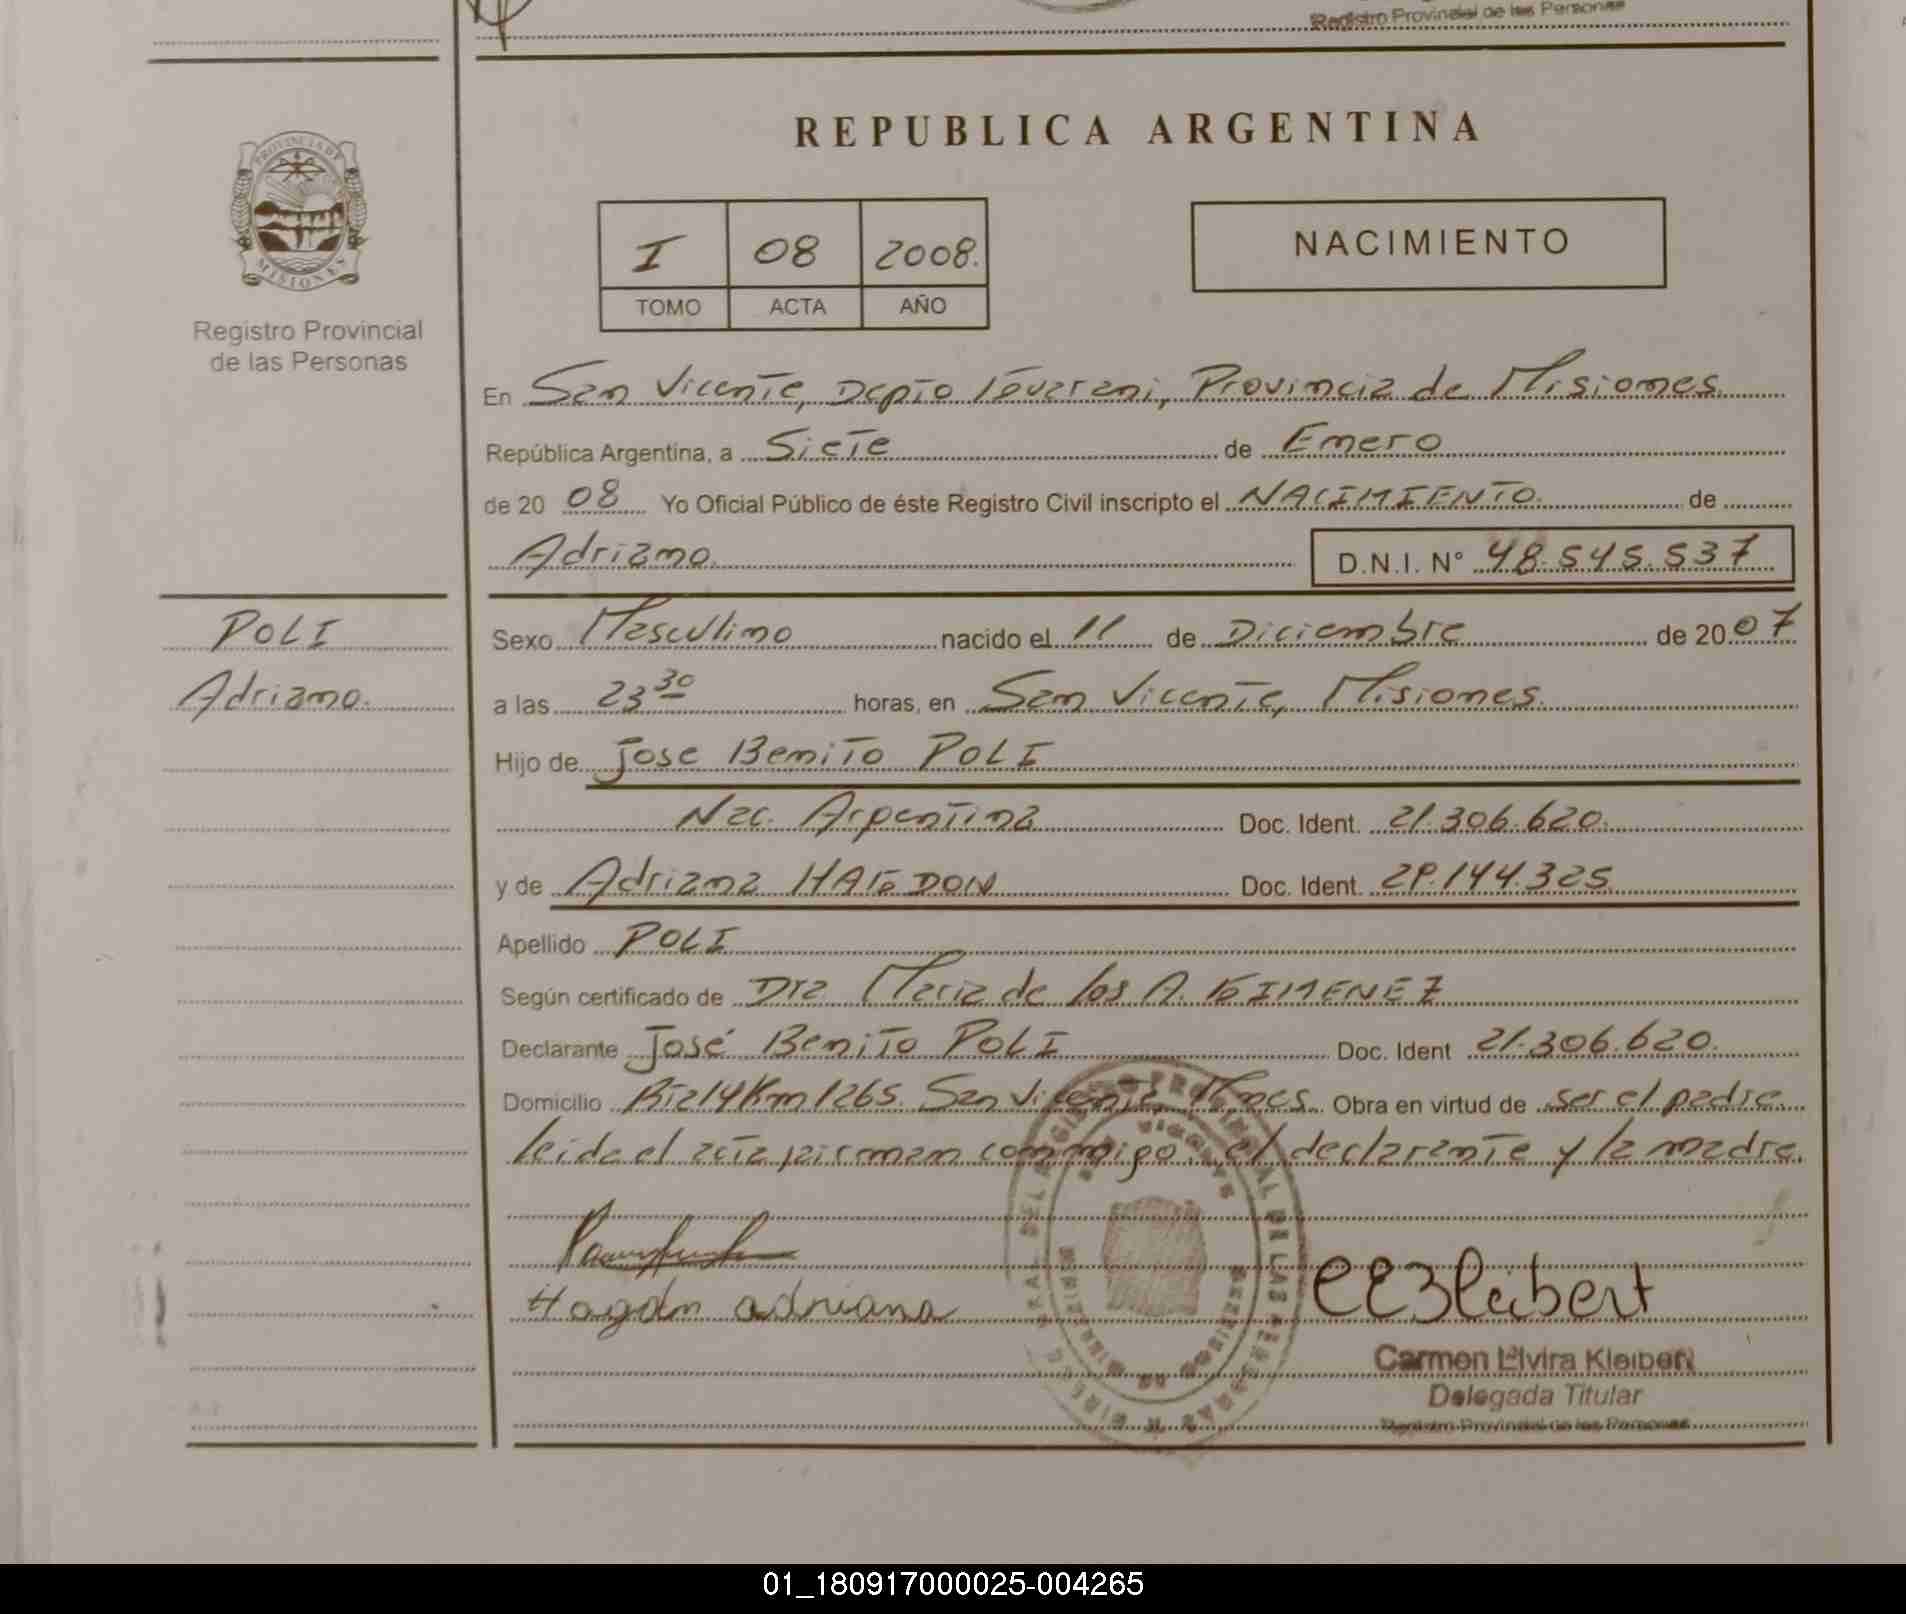 Registro Provincial de las Personas
PROVINCIA DE
MISIONES
Registro Provincial
de las Personas
REPUBLICA ARGENTINA
I 08 2008.
TOMO ACTA AÑO
NACIMIENTO
En San Vicente, Depto Guarani, Provincia de Misiones
República Argentina, a Siete de Enero
de 20 08 Yo Oficial Público de éste Registro Civil inscripto el NACIMIENTO de
Adriano. D.N.I. N° 48.545.537
POLI
Adriano.
Sexo Masculino nacido el 11 de Diciembre de 2007
a las 23 30 horas, en San Vicente, Misiones.
Hijo de Jose Benito POLI
Nac. Argentina Doc. Ident. 21.306.620.
y de Adriana HAGDON Doc. Ident. 29.144.325
Apellido POLI
Según certificado de Dra Maria de los A. GIMENEZ
Declarante José Benito POLI Doc. Ident 21.306.620.
Domicilio Rta 14 Km 1265. San Vicente, Mnes. Obra en virtud de ser el padre.
leida el acta firman conmigo, el declarante y la madre.
Hagdn adriana
CEKleibert
Carmen Elvira Kleibert
Delegada Titular
Registro Provincial de las Personas
01_180917000025-004265